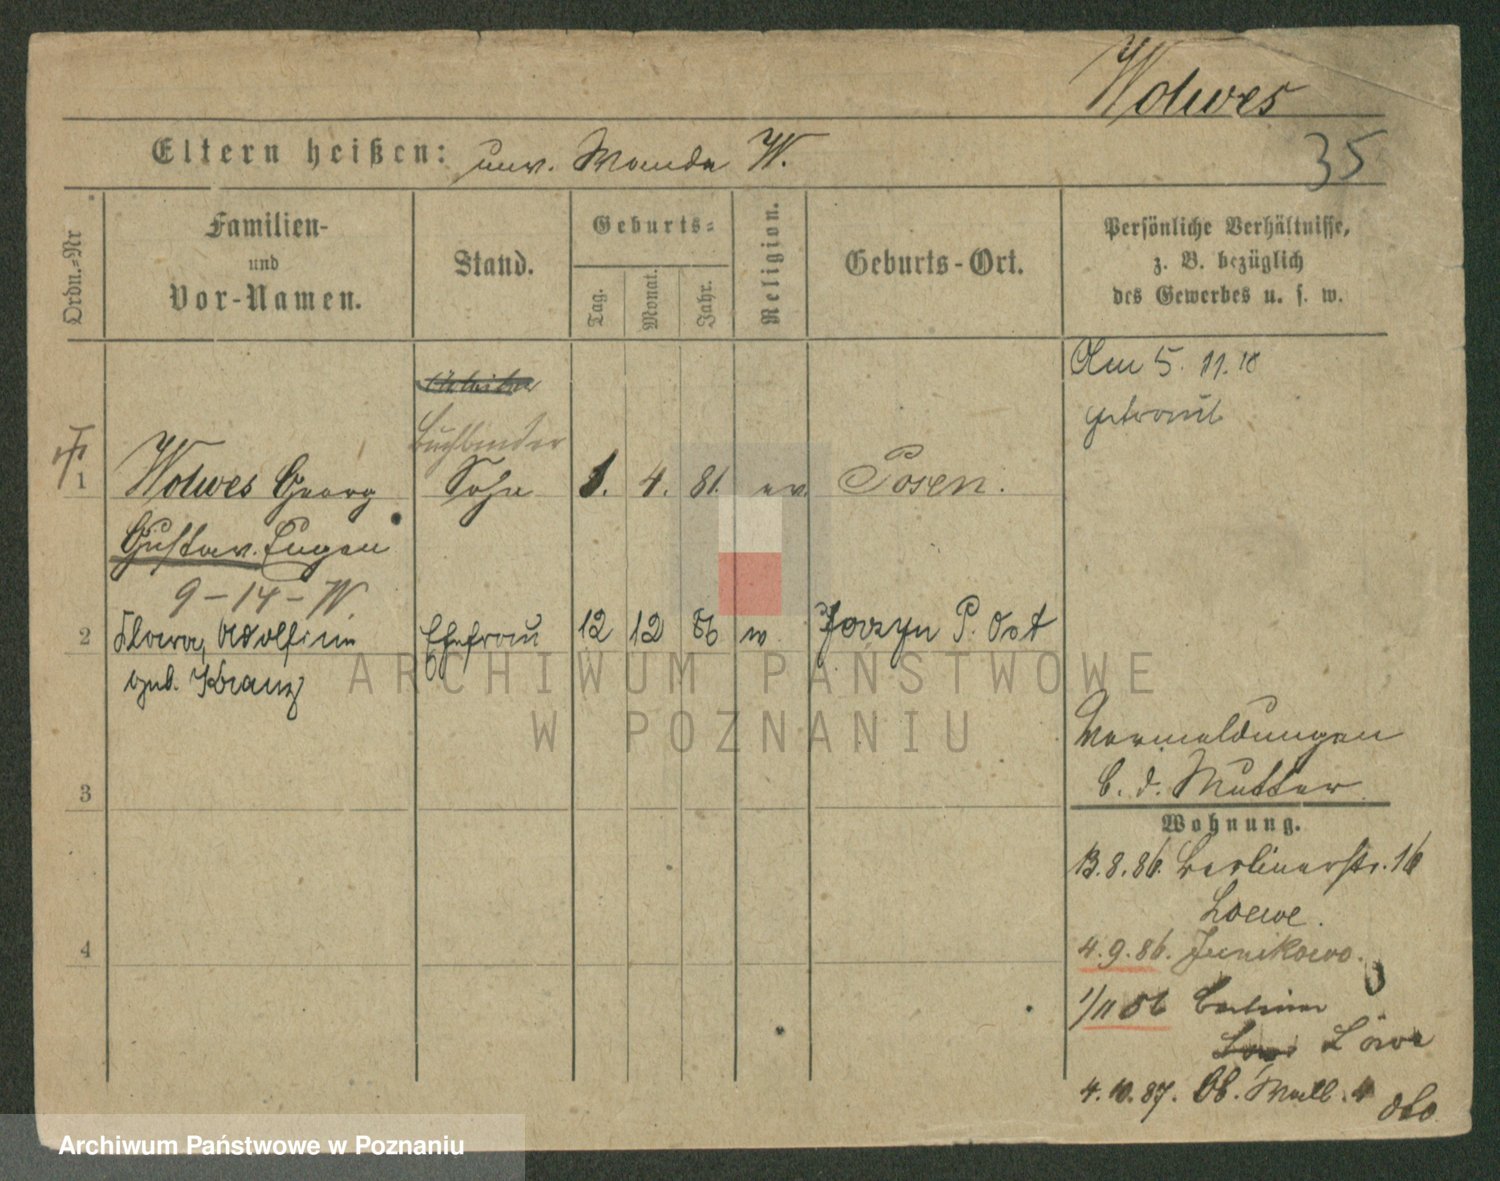 Wolwes
35
Eltern heißen: unv. Wanda W.
Ordn.-Nr
Familien-
und
Vor-Namen.
Stand.
Geburts-
Tag.
Monat.
Jahr.
Religion.
Geburts-Ort.
Persönliche Verhältnisse,
z. B. bezüglich
des Gewerbes u. s. w.
Am 5. 11. 10
getraut
Arbeiter
Buchbinder
1 Wolwes Georg Sohn 1. 4. 81. ev. Posen.
Gustav Eugen
9-14-W.
2 Adolfine Ehefrau 12 12 86 P. Ost
geb. Kranz
ARCHIWUM PAŃSTWOWE
W POZNANIU
Vermeldungen
b. d. Mutter
3
Wohnung.
13.8.86. Berlinerstr. 16
Loewe.
4
4.9.86. Junikowo.
1/11 86 Berliner
Löwe
4.10.87. Ob. Wall. 4
Archiwum Państwowe w Poznaniu